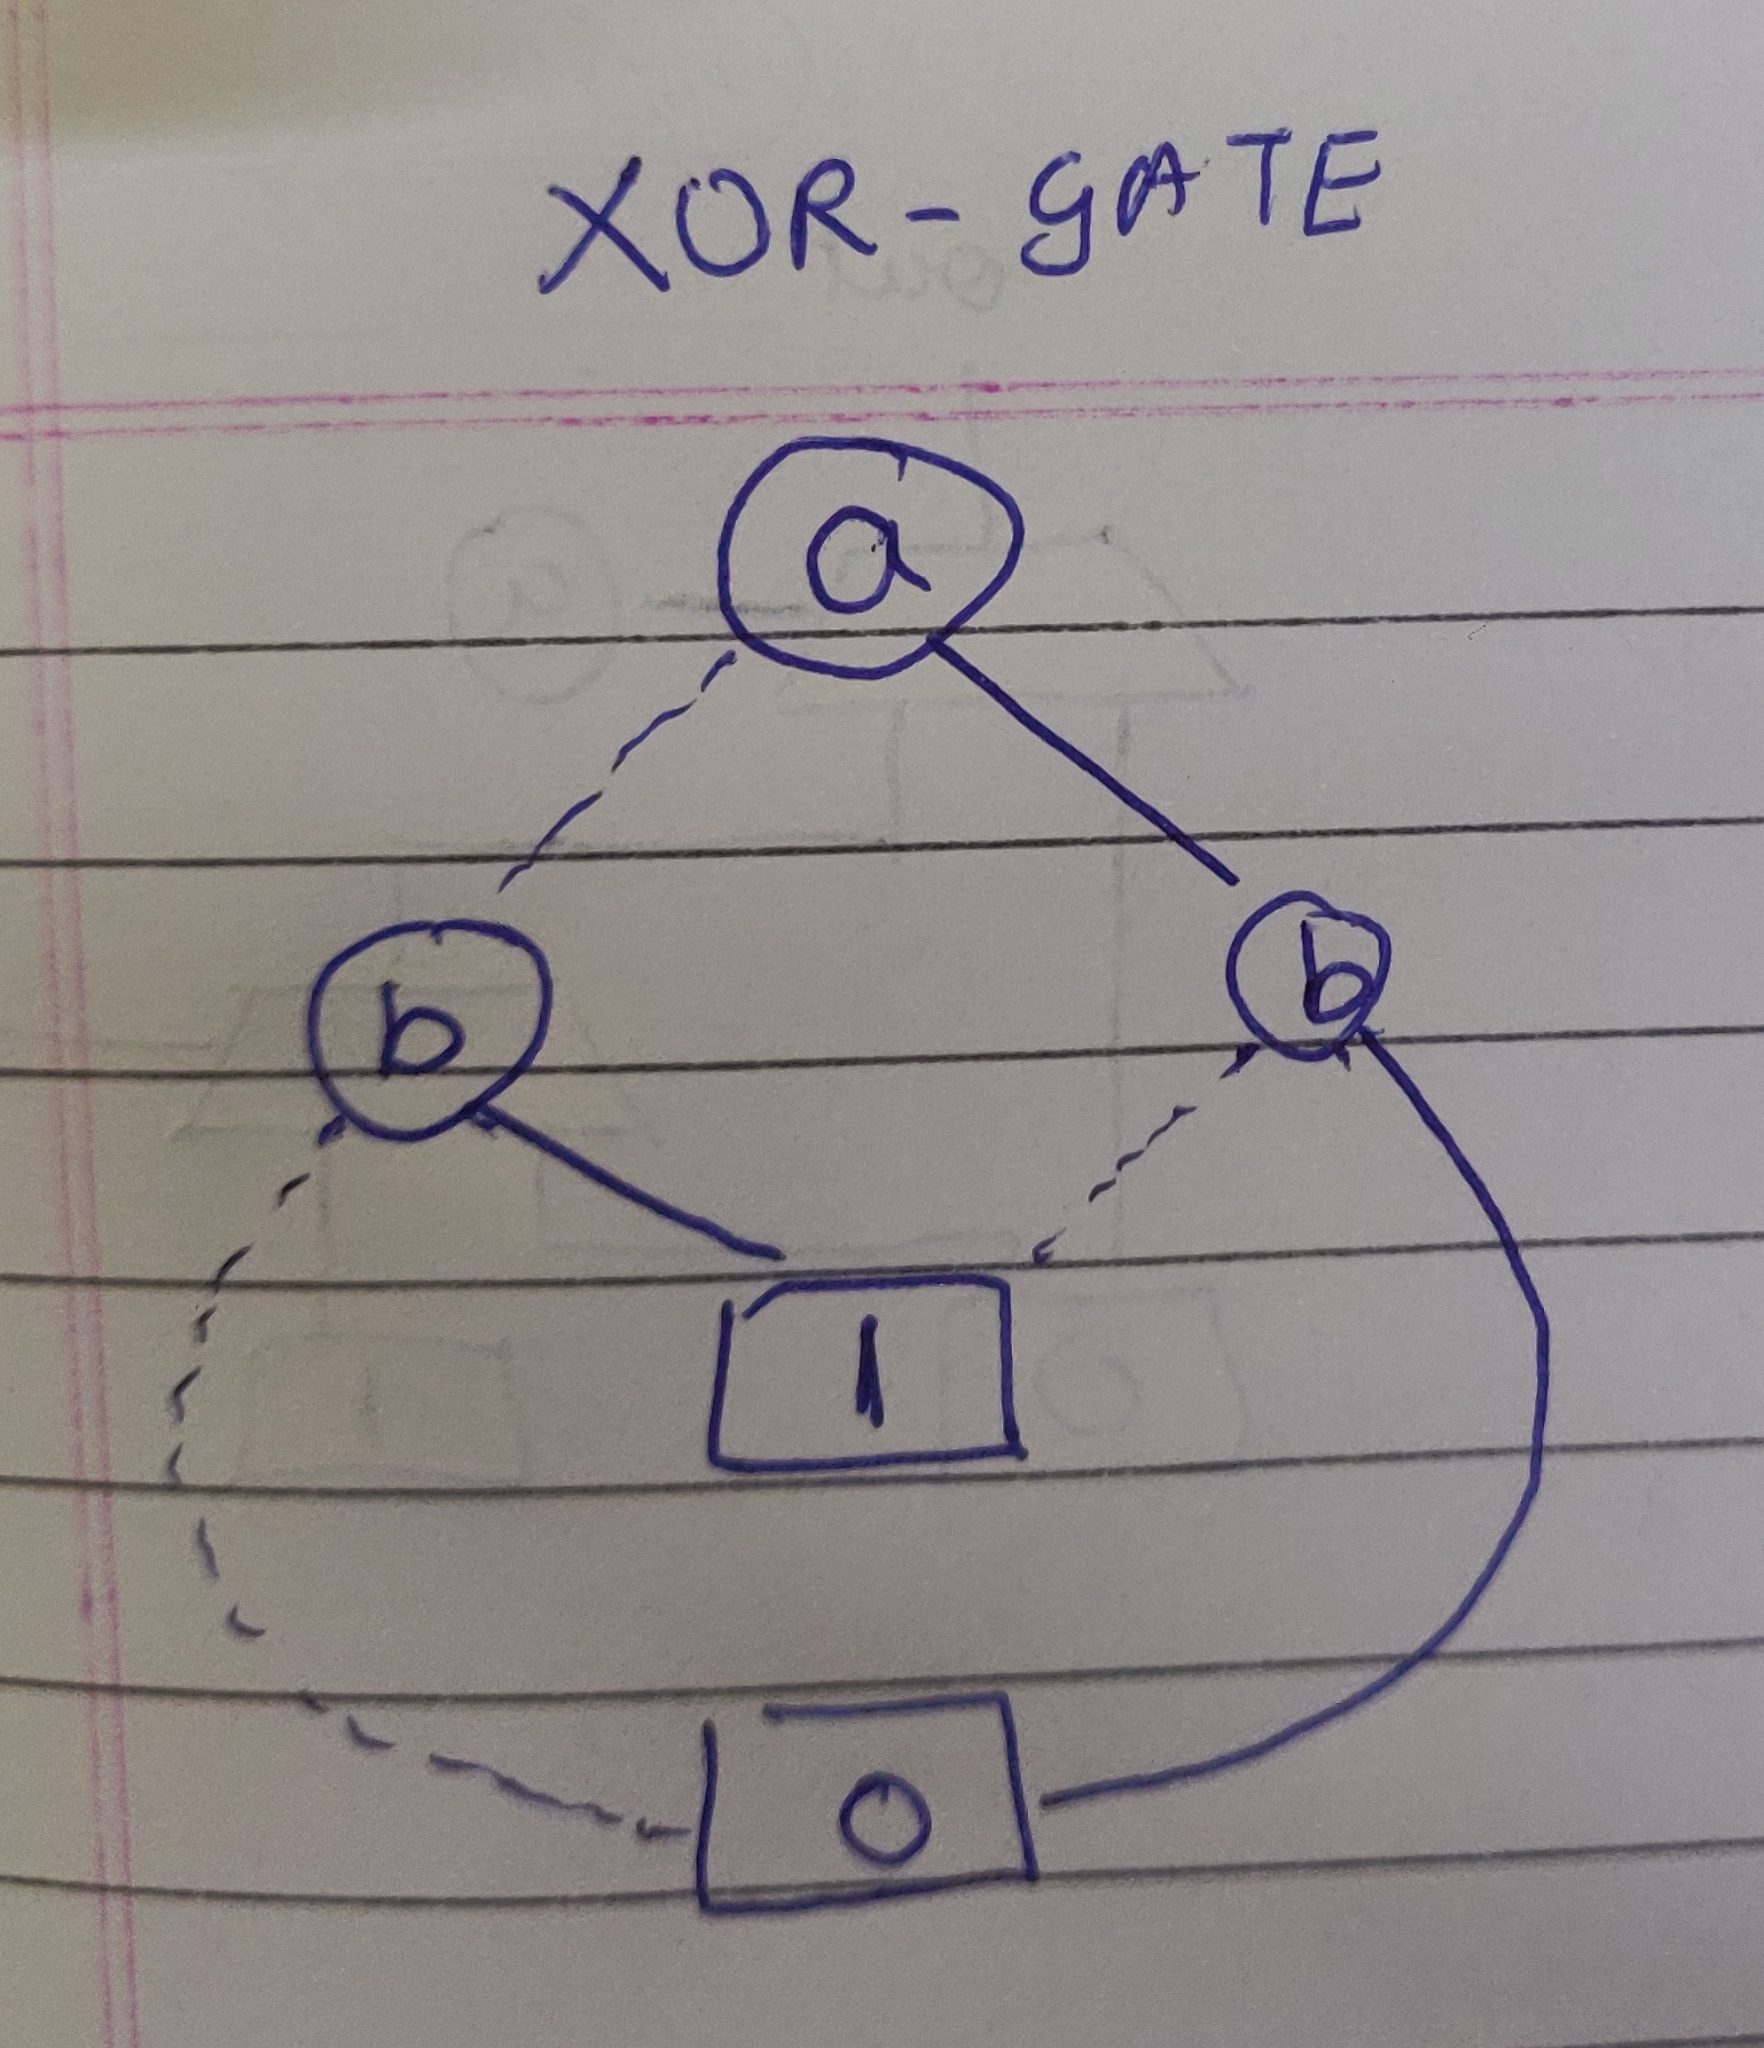 XOR-GATE
a
b b
1
0